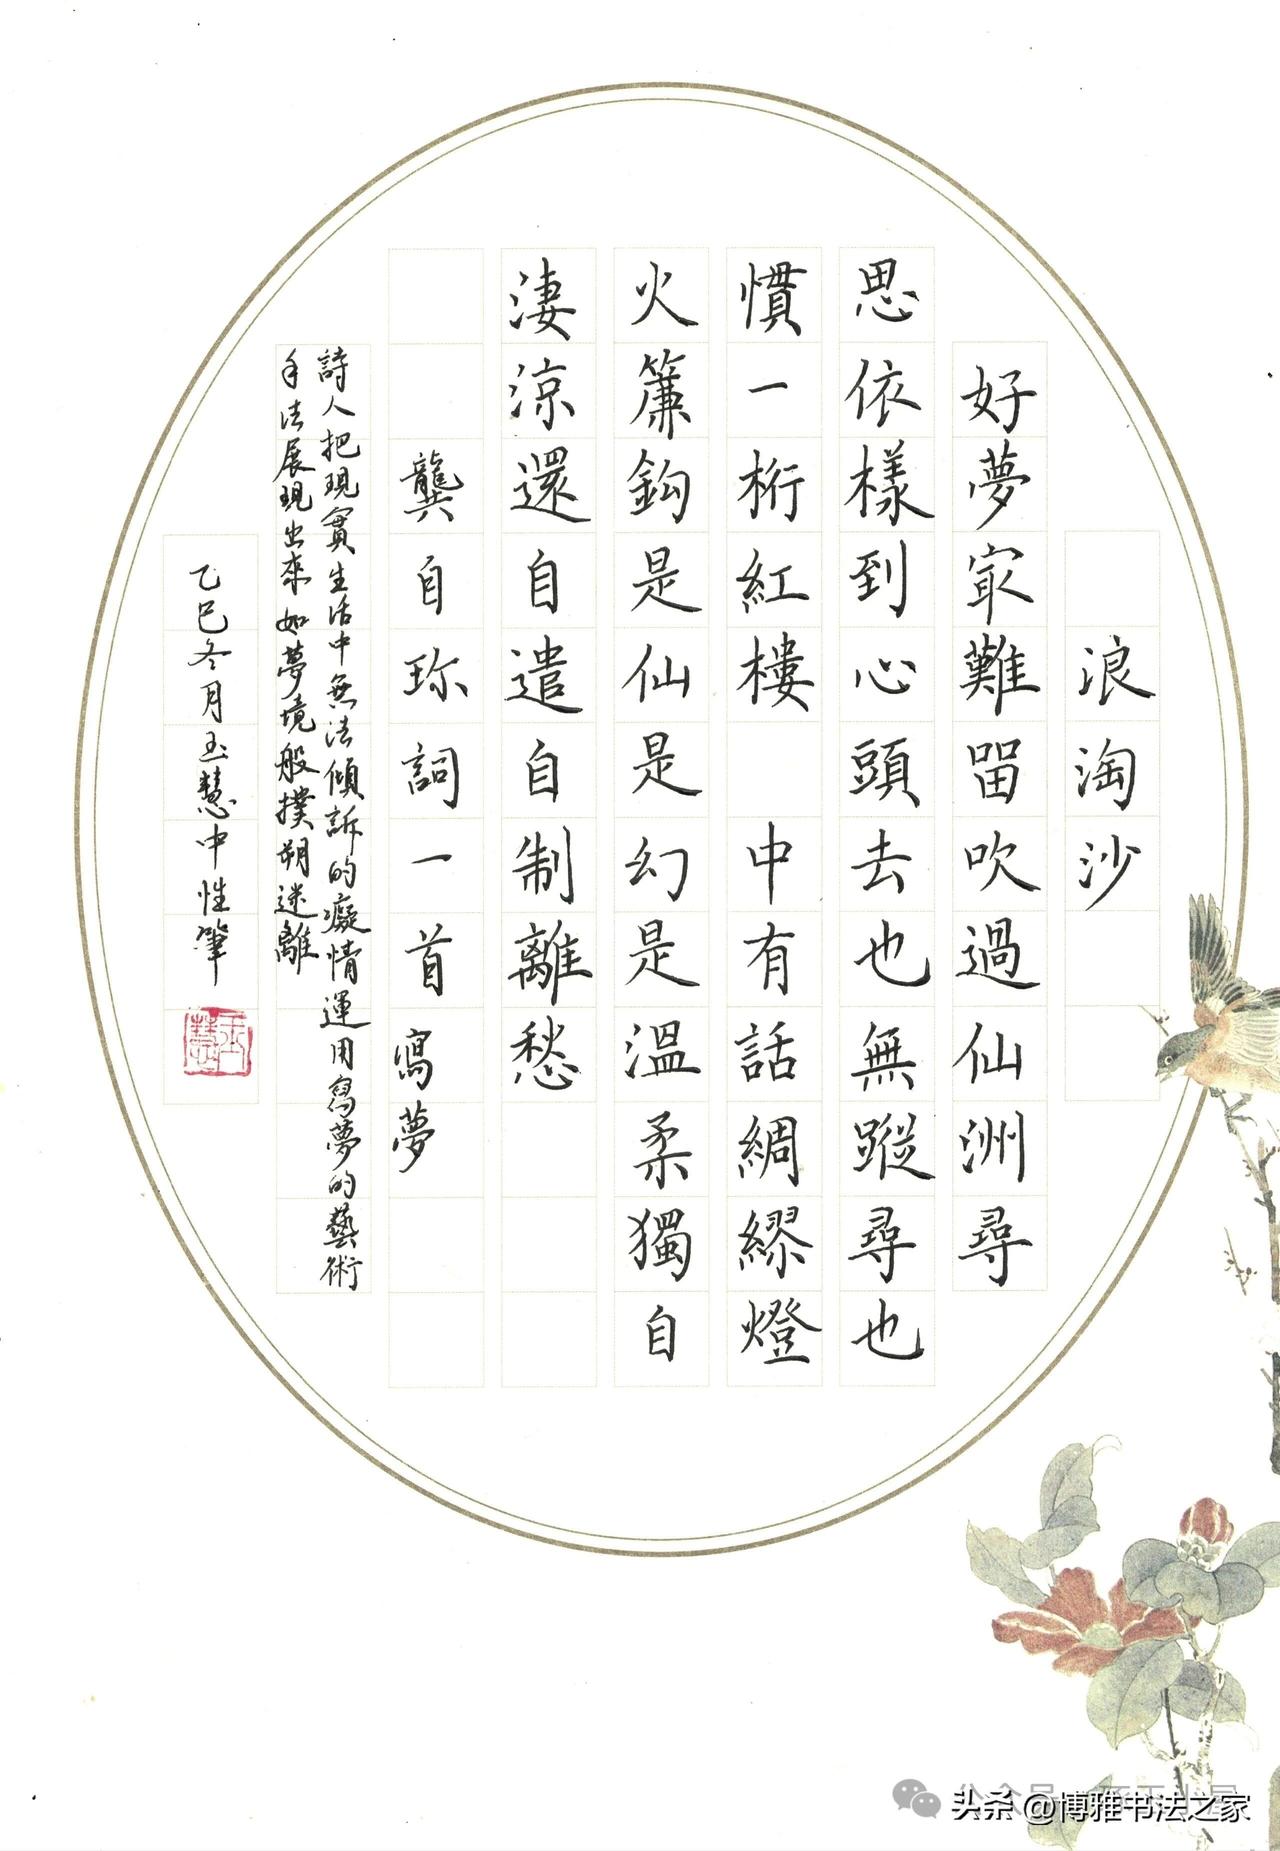 浪淘沙
好夢冣難畱吹過仙洲尋
思依樣到心頭去也無蹤尋也
慣一桁紅樓 中有話綢繆燈
火簾鈎是仙是幻是溫柔獨自
淒涼還自遣自制離愁
龔自珎詞一首寫夢
詩人把現實生活中無法傾訴的癡情運用寫夢的藝術
手法展現出來如夢境般撲朔迷離
乙巳冬月玉慧中性筆
玉慧
头条@博雅书法之家